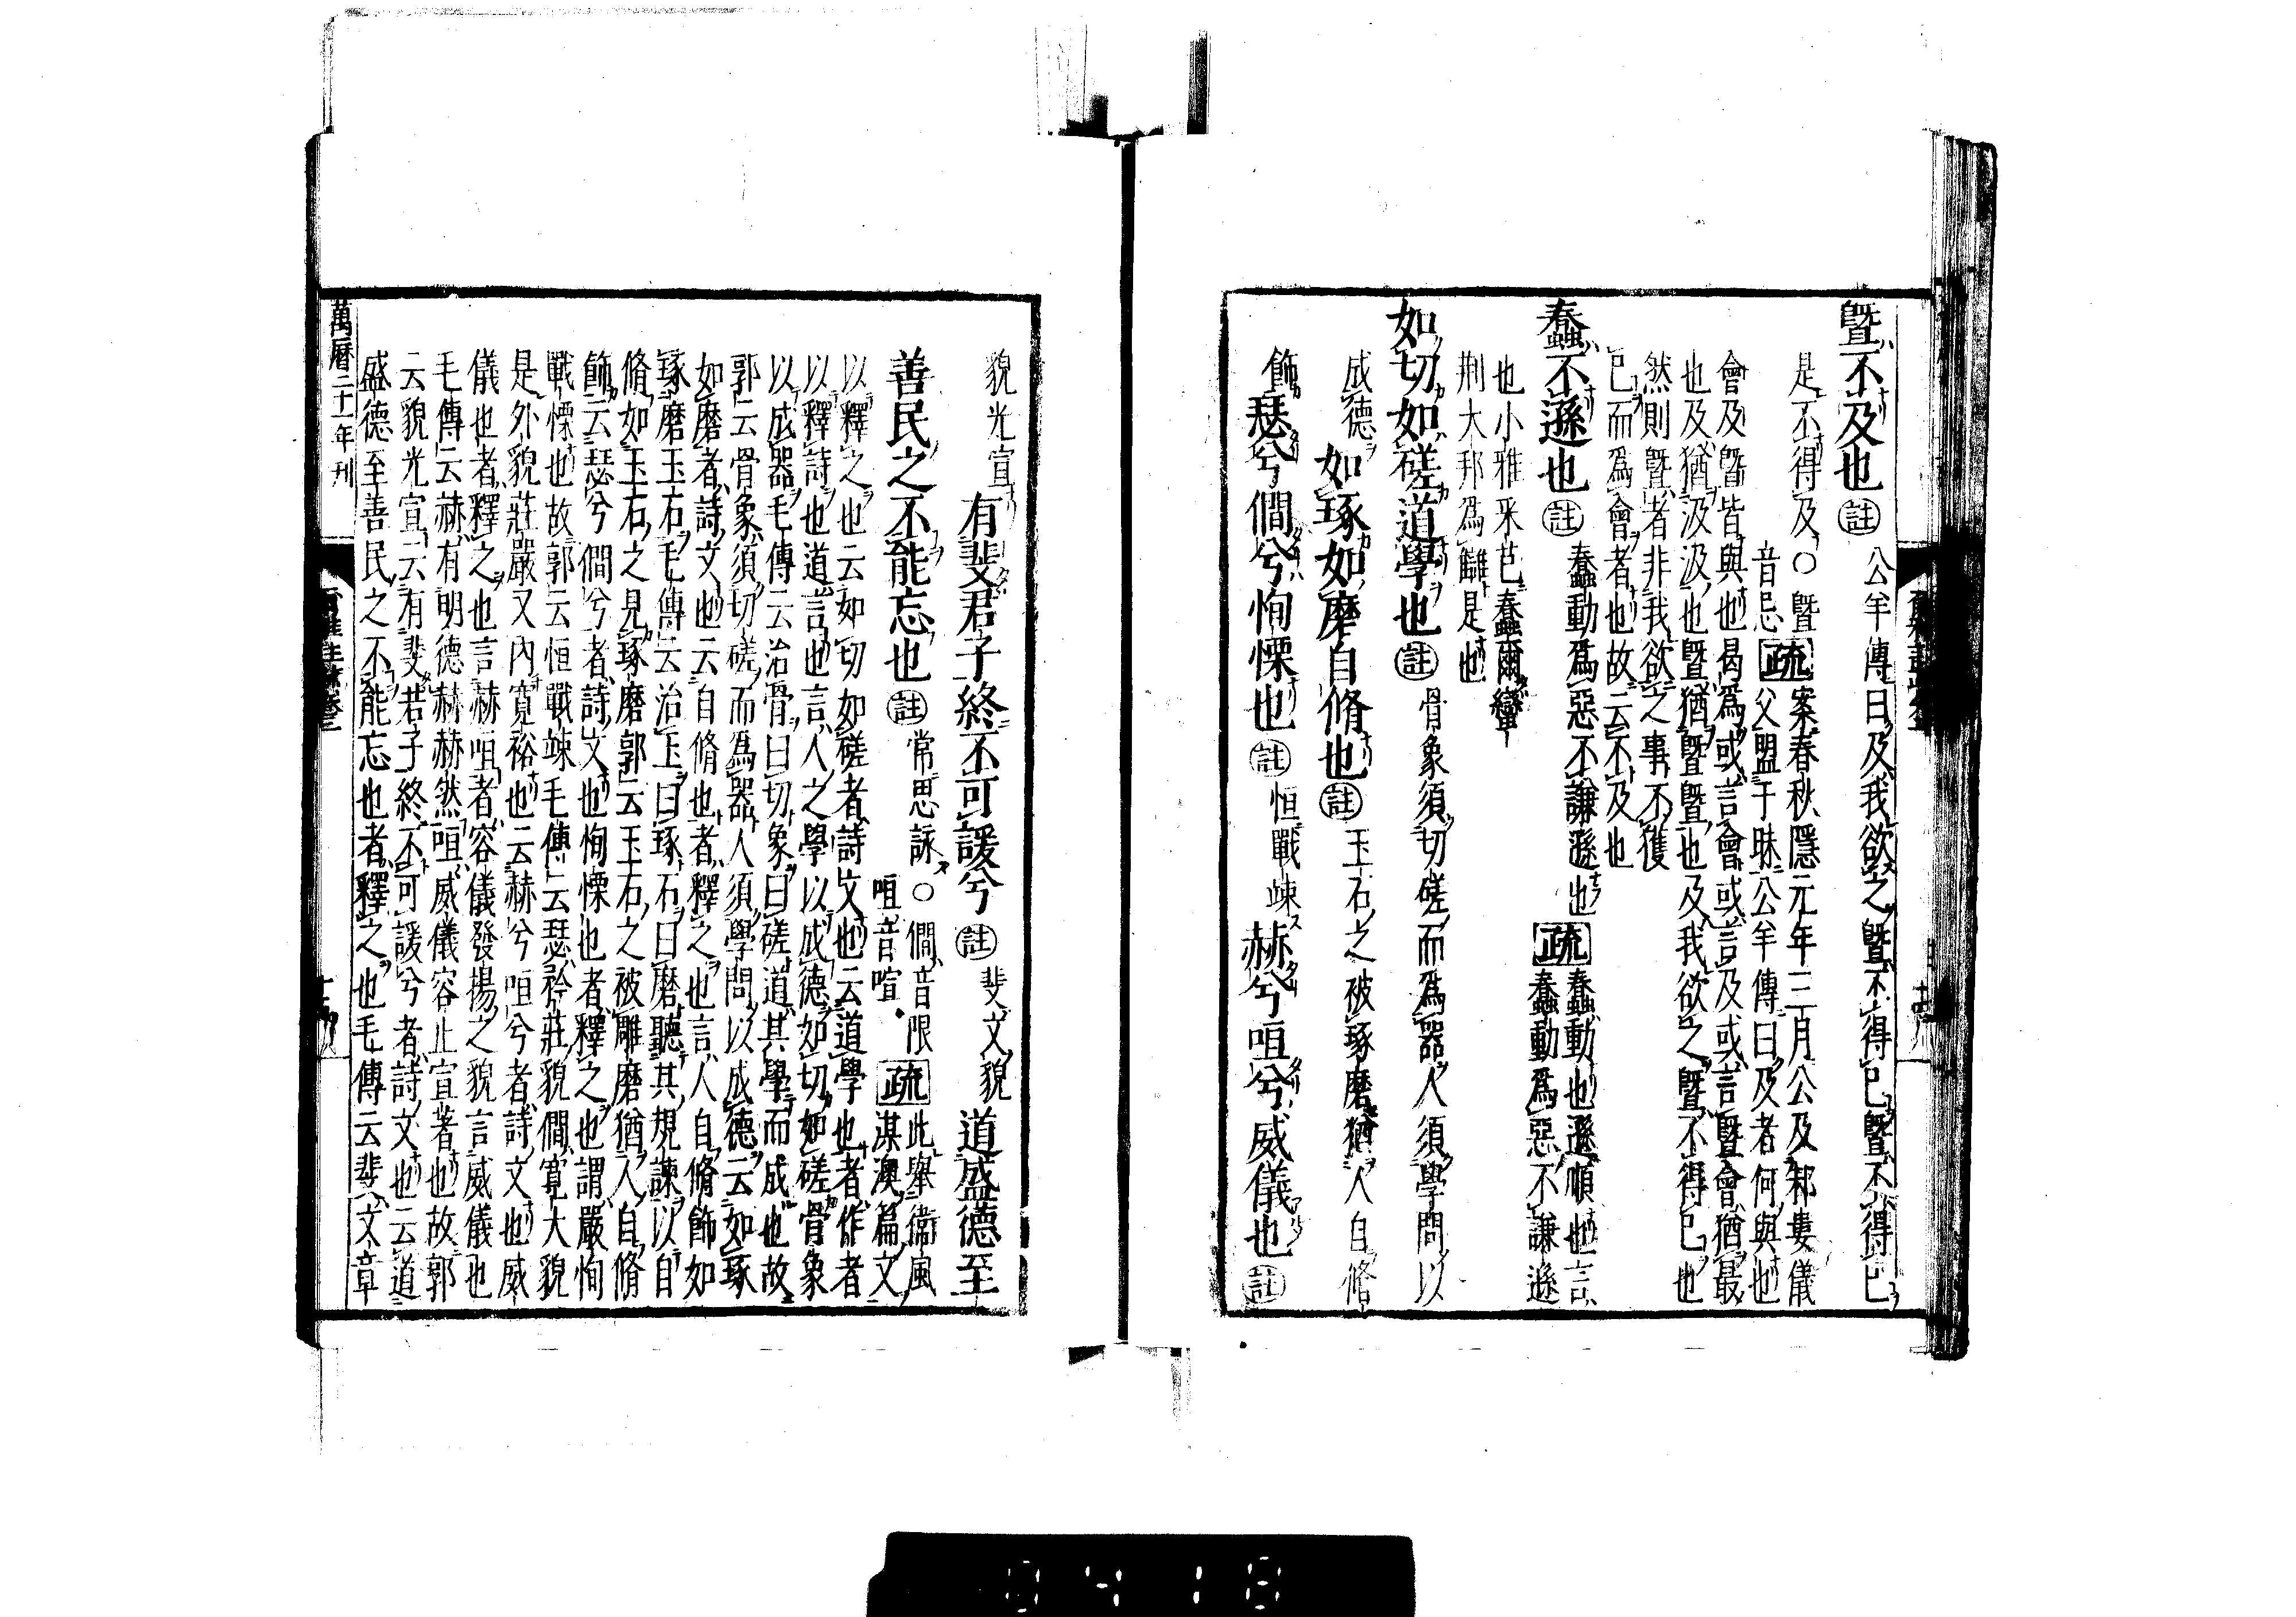 曁不及也 註 公羊傳曰及我欲之曁不得已曁不得已
是不得及○曁音忌 疏 案春秋隱元年三月公及邾婁儀
父盟于眛公羊傳曰及者何與也
會及曁皆與也曷爲或言會或言及或言曁會猶最
也及猶汲汲也曁猶曁曁也及我欲之曁不得已也
然則曁者非我欲之事不獲
已而爲會者也故云不及也
蠢不遜也 註 蠢動爲惡不謙遜也 疏 蠢動也遜順也言
蠢動爲惡不謙遜
也小雅采芑蠢爾蠻
荆大邦爲讎是也
如切如磋道學也 註 骨象須切磋而爲器人須學問以
成德 如琢如磨自脩也 註 玉石之被琢磨猶人自脩
飾 瑟兮僩兮恂慄也 註 恒戰竦 赫兮咺兮威儀也 註
貌光宣 有斐君子終不可諼兮 註 斐文貌 道盛德至
善民之不能忘也 註 常思詠○僩音限
咺音喧 疏 此舉衞風
淇澳篇文
以釋之也云如切如磋者詩文也云道學也者作者
以釋詩也道言也言人之學以成德如切如磋骨象
以成器毛傳云治骨曰切象曰磋道其學而成也故
郭云骨象須切磋而爲器人須學問以成德云如琢
如磨者詩文也云自脩也者釋之也言人自脩飾如
琢磨玉石毛傳云治玉曰琢石曰磨聽其規諫以自
脩如玉石之見琢磨郭云玉石之被雕磨猶人自脩
飾云瑟兮僩兮者詩文也恂慄也者釋之也謂嚴恂
戰慄也故郭云恒戰竦毛傳云瑟矜莊貌僩寬大貌
是外貌莊嚴又內寬裕也云赫兮咺兮者詩文也威
儀也者釋之也言赫咺者容儀發揚之貌言威儀也
毛傳云赫有明德赫赫然咺威儀容止宣著也故郭
云貌光宣云有斐君子終不可諼兮者詩文也云道
盛德至善民之不能忘也者釋之也毛傳云斐文章
萬曆二十一年刊